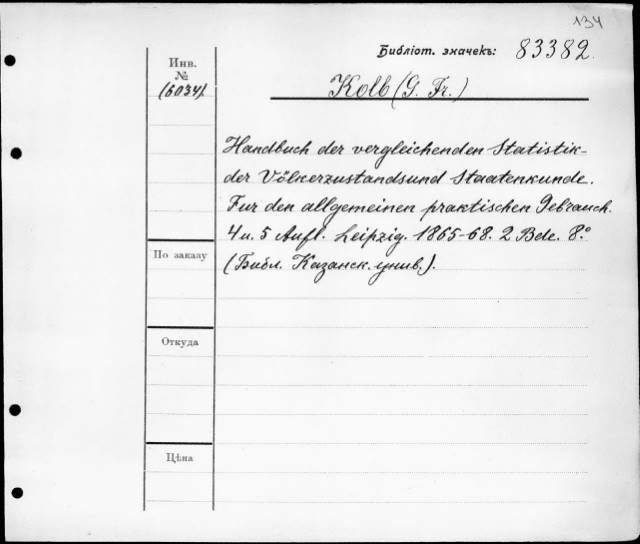 134
Библіот. значекъ: 83382.
Инв.
№
(6034)
Kolb (G. Fr.)
Handbuch der vergleichenden Statistik-
der Völkerzustandsund Staatenkunde.
Fur den allgemeinen praktischen Gebrauch.
4 u. 5 Aufl. Leipzig. 1865-68. 2 Bde. 8.°
(Библ. Казанск. унив.).
По заказу
Откуда
Цѣна